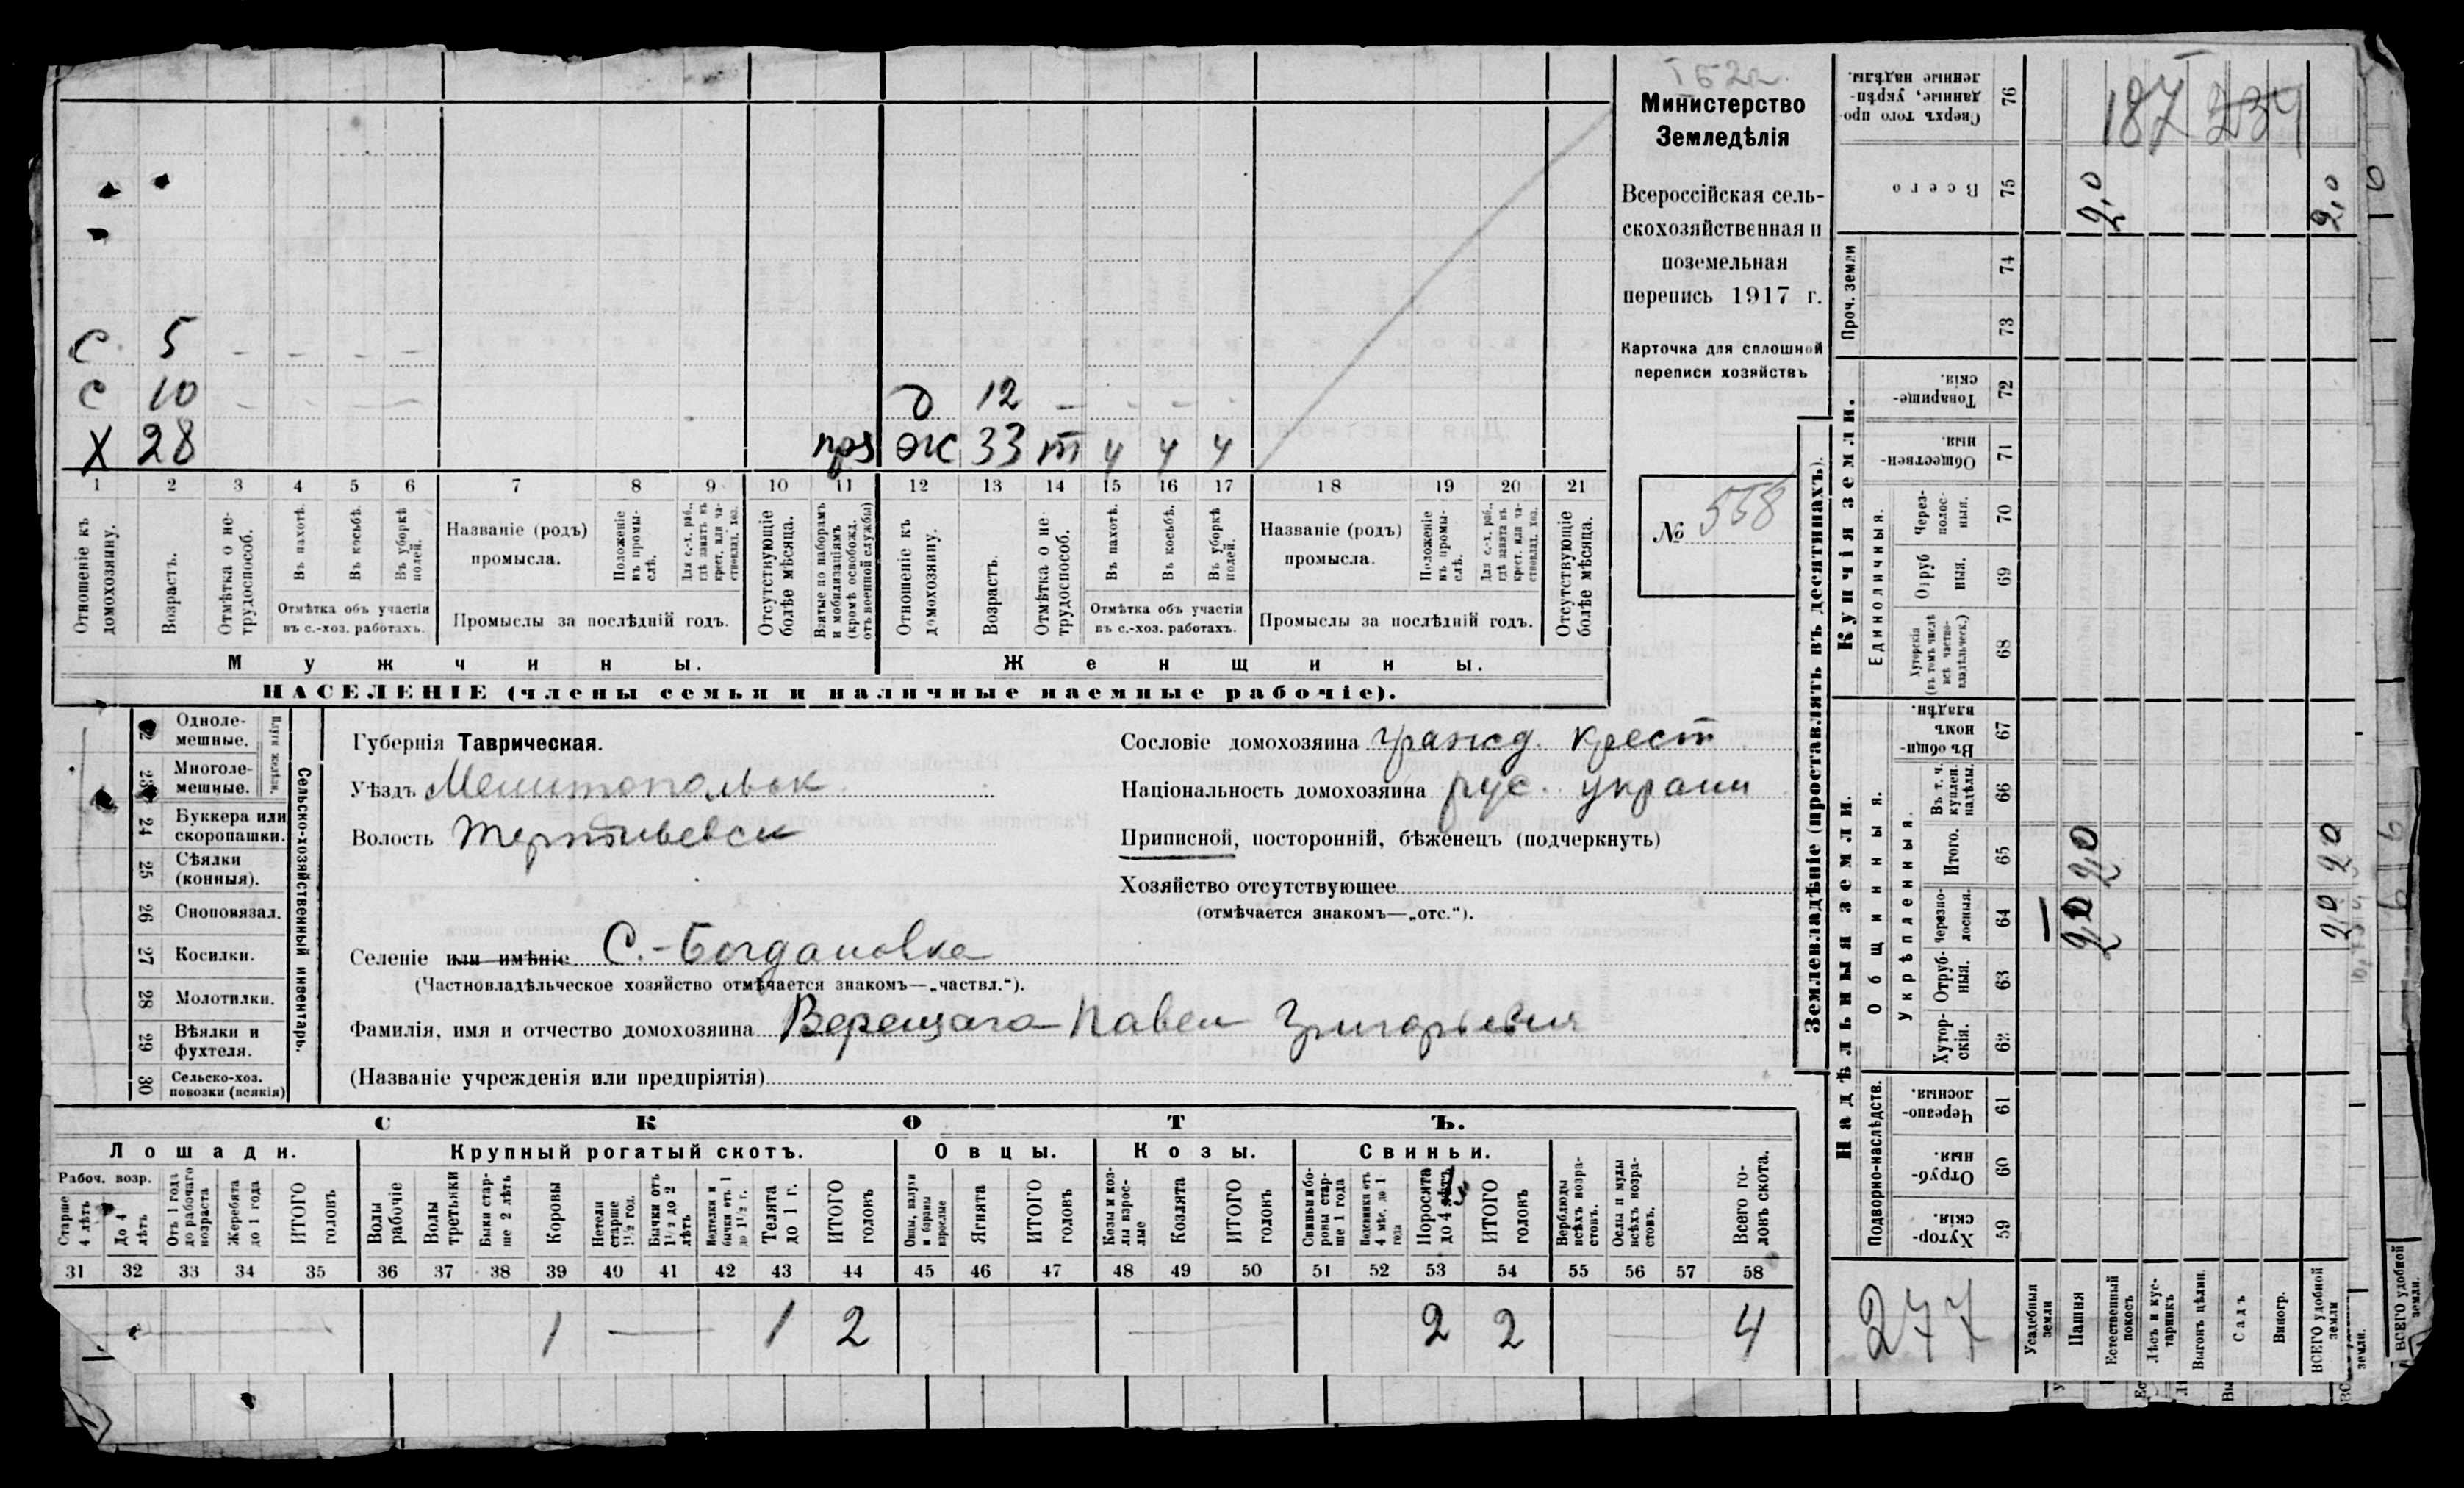 С 5 - - - -
С 10 - - - - Д 12 - - - -
Х 28 прз Ж 33 т ч ч ч
1 2 3 4 5 6 7 8 9 10 11 12 13 14 15 16 17 18 19 20 21
Отношеніе къ домохозяину.
Возрастъ.
Отмѣтка о не-трудоспособ.
Въ пахотѣ.
Въ косьбѣ.
Въ уборкѣ полей.
Отмѣтка объ участіи
въ с.-хоз. работахъ.
Названіе (родъ)
промысла.
Положеніе въ промы-слѣ.
Для с.-х. раб., гдѣ занятъ въ крест. или ча-стновлад. хоз.
Промыслы за послѣдній годъ.
Отсутствующіе болѣе мѣсяца.
Взятые по наборамъ и мобилизаціямъ (кромѣ освобожд. отъ военной службы)
Отношеніе къ домохозяину.
Возрастъ.
Отмѣтка о не-трудоспособ.
Въ пахотѣ.
Въ косьбѣ.
Въ уборкѣ полей.
Отмѣтка объ участіи
въ с.-хоз. работахъ.
Названіе (родъ)
промысла.
Положеніе въ промы-слѣ.
Для с.-х. раб., гдѣ занята въ крест. или ча-стновлад. хоз.
Промыслы за послѣдній годъ.
Отсутствующіе болѣе мѣсяца.
Мужчины.
Женщины.
НАСЕЛЕНІЕ (члены семьи и наличные наемные рабочіе).
Министерство
Земледѣлія
Всероссійская сель-
скохозяйственная и
поземельная
перепись 1917 г.
Карточка для сплошной
переписи хозяйствъ
№ 558
Одноле-мешные.
23 Многоле-мешные.
Плуги желѣзн.
24 Буккера или скоропашки.
25 Сѣялки (конныя).
26 Сноповязал.
27 Косилки.
28 Молотилки.
29 Вѣялки и фухтеля.
30 Сельско-хоз. повозки (всякія)
Сельско-хозяйственный инвентарь.
Губернія Таврическая.
Уѣздъ Мелитопольск
Волость Терпеньевск
Селеніе или имѣніе С.-Богдановка
(Частновладѣльческое хозяйство отмѣчается знакомъ—„частвл.“).
Фамилія, имя и отчество домохозяина Верещага Павел Григорьевич
(Названіе учрежденія или предпріятія)
Сословіе домохозяина гражд. крест
Національность домохозяина рус. украин
Приписной, посторонній, бѣженецъ (подчеркнуть)
Хозяйство отсутствующее
(отмѣчается знакомъ—„отс.“).
СКОТЪ.
Лошади.
Крупный рогатый скотъ.
Овцы.
Козы.
Свиньи.
Рабоч. возр.
Старше 4 лѣтъ
До 4 лѣтъ
Отъ 1 года до рабочаго возраста
Жеребята до 1 года
ИТОГО головъ
Волы рабочіе
Волы третьяки
Быки стар-ше 2 лѣтъ
Коровы
Нетели старше 1½ год.
Бычки отъ 1½ до 2 лѣтъ
Нетелки и бычки отъ 1 до 1½ г.
Телята до 1 г.
ИТОГО головъ
Овцы, валухи и бараны взрослые
Ягнята
ИТОГО головъ
Козы и коз-лы взрос-лые
Козлята
ИТОГО головъ
Свиньи и бо-ровы стар-ше 1 года
Подсвинки отъ 4 мѣс. до 1 года
Поросята до 4 лѣтъ
ИТОГО головъ
Верблюды всѣхъ возра-стовъ.
Ослы и мулы всѣхъ возра-стовъ.
Всего го-ловъ скота.
31 32 33 34 35 36 37 38 39 40 41 42 43 44 45 46 47 48 49 50 51 52 53 54 55 56 57 58
1 — 1 2 2 2 4
Землевладѣніе (проставлять въ десятинахъ).
Купчія земли.
Надѣльныя земли.
76 Сверхъ того про-данные, укрѣп-ленные надѣлы.
75 Всего
Проч. земли
74
73
72 Товарище-скія.
71 Обществен-ныя.
Единоличныя.
70 Через-полос-ныя.
69 Отруб ныя.
68 Хуторскія (въ томъ числѣ всѣ частно-владѣльческ.)
67 Въ общи-номъ владѣн.
Общинныя.
Укрѣпленныя.
66 Въ т. ч. куплен. надѣлы.
65 Итого.
64 Черезпо-лосныя.
63 Отруб-ныя.
62 Хутор-скія.
Подворно-наслѣдств.
61 Черезпо-лосныя.
60 Отруб-ныя.
59 Хутор-скія.
187 334
2,0 2,0
2,0 2,0
2,0 2,0
277
Усадебныя земли
Пашня
Естественный покосъ
Лѣсъ и кус-тарникъ
Выгонъ цѣлин.
Садъ
Виногр.
ВСЕГО удобной земли
земли.
ВСЕГО удобной земли.